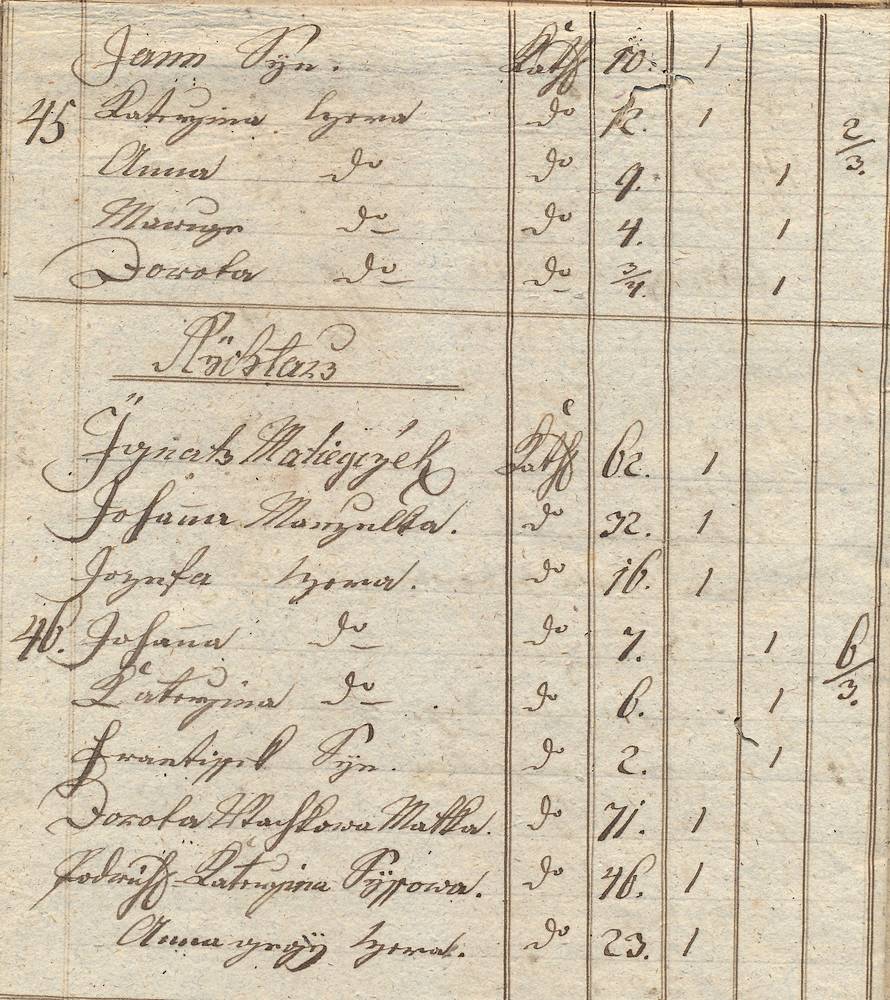 Jann Syn. Kath 10. 1
45 Katerzina Dzera do 12. 1 2/3.
Anna do do 9. 1
do do 4. 1
Dorota do do 3/4. 1
Rychtarz
Ignatz Matiegiczek Kath 62. 1
Johanna Manzelka. do 32. 1
Jozefa Dzera. do 16. 1
46. Johanna do do 7. 1 6/3.
Katerzina do do 6. 1
Frantissek Syn. do 2. 1
Dorota Matka. do 71. 1
Podruh Katerzina Syssowa. do 46. 1
Anna gegy Dzera. do 23. 1